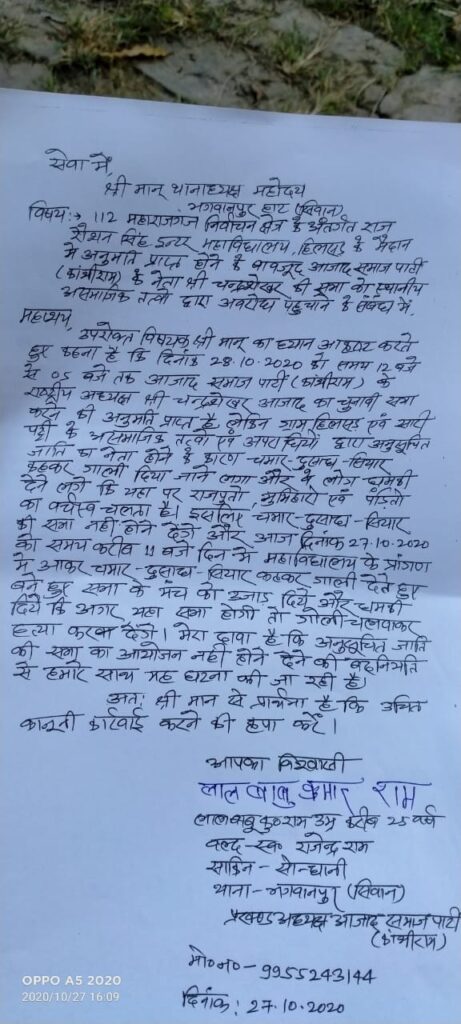 सेवा में,
श्री मान् थानाध्यक्ष महोदय
भगवानपुर हाट (सिवान)
विषय:→ 112 महाराजगंज निर्वाचन क्षेत्र के अंतर्गत राज
रौशन सिंह इन्टर महाविद्यालय, हिलसड़ के मैदान
में अनुमति प्राप्त होने के बावजूद आजाद समाज पार्टी
(कांशीराम) के नेता श्री चन्द्रशेखर की सभा को स्थानीय
असमाजिक तत्वो द्वारा अवरोध पहुचाने के संबंध में,
महाशय,
उपरोक्त विषयक श्री मान् का ध्यान आकृष्ट करते
हुए कहना है कि दिनांक 28.10.2020 को समय 12 बजे
से 05 बजे तक आजाद समाज पार्टी (कांशीराम) के
राष्ट्रीय अध्यक्ष श्री चन्द्रशेखर आजाद का चुनावी सभा
करने की अनुमति प्राप्त है, लेकिन ग्राम हिलसड़ एवं सारी
पट्टी के असमाजिक तत्वो एवं अपराधियो द्वारा अनुसूचित
जाति का नेता होने के कारण चमार-दुसाध-सियार
कहकर गाली दिया जाने लगा और वे लोग धमकी
देने लगे कि यहा पर राजपुतो, भुमिहारो एवं पंडितो
का वर्चस्व चलता है। इसलिए चमार-दुसाध-सियार
की सभा नही होने देगे और आज दिनांक 27.10.2020
को समय करीब 11 बजे दिन में महाविद्यालय के प्रांगण
मे आकर चमार-दुसाध-सियार कहकर गाली देते हुए
बने हुए सभा के मंच को उजाड़ दिये और धमकी
दिये कि अगर यहा सभा होगी तो गोली चलवाकर
हत्या करवा देंगे। मेरा दावा है कि अनुसूचित जाति
की सभा का आयोजन नही होने देने की बदनियति
से हमारे साथ यह घटना की जा रही है।
अतः श्री मान से प्रार्थना है कि उचित
कानूनी कार्रवाई करने की कृपा करें।
आपका विश्वासी
लाल बाबु कुमार राम
लालबाबु कु० राम उम्र करीब 25 वर्ष
वल्द-स्व० राजेन्द्र राम
साकिन - सोन्धानी
थाना-भगवानपुर (सिवान)
प्रखण्ड अध्यक्ष आजाद समाज पार्टी
(कांशीराम)
मो०न०-9955243144
दिनांक: 27.10.2020
OPPO A5 2020
2020/10/27 16:09